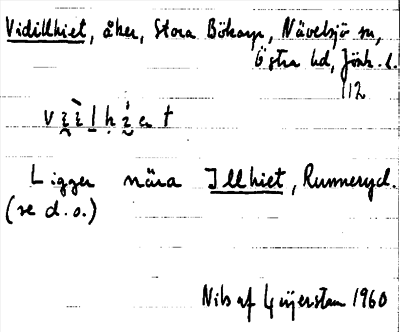 Vidillhiet, åker, Stora Bökaryp, Nävelsjö sn,
Östra hd, Jönk. l.
112
Ligger nära Illhiet, Runneryd.
(se d.o.)
Nils af Geijerstam 1960